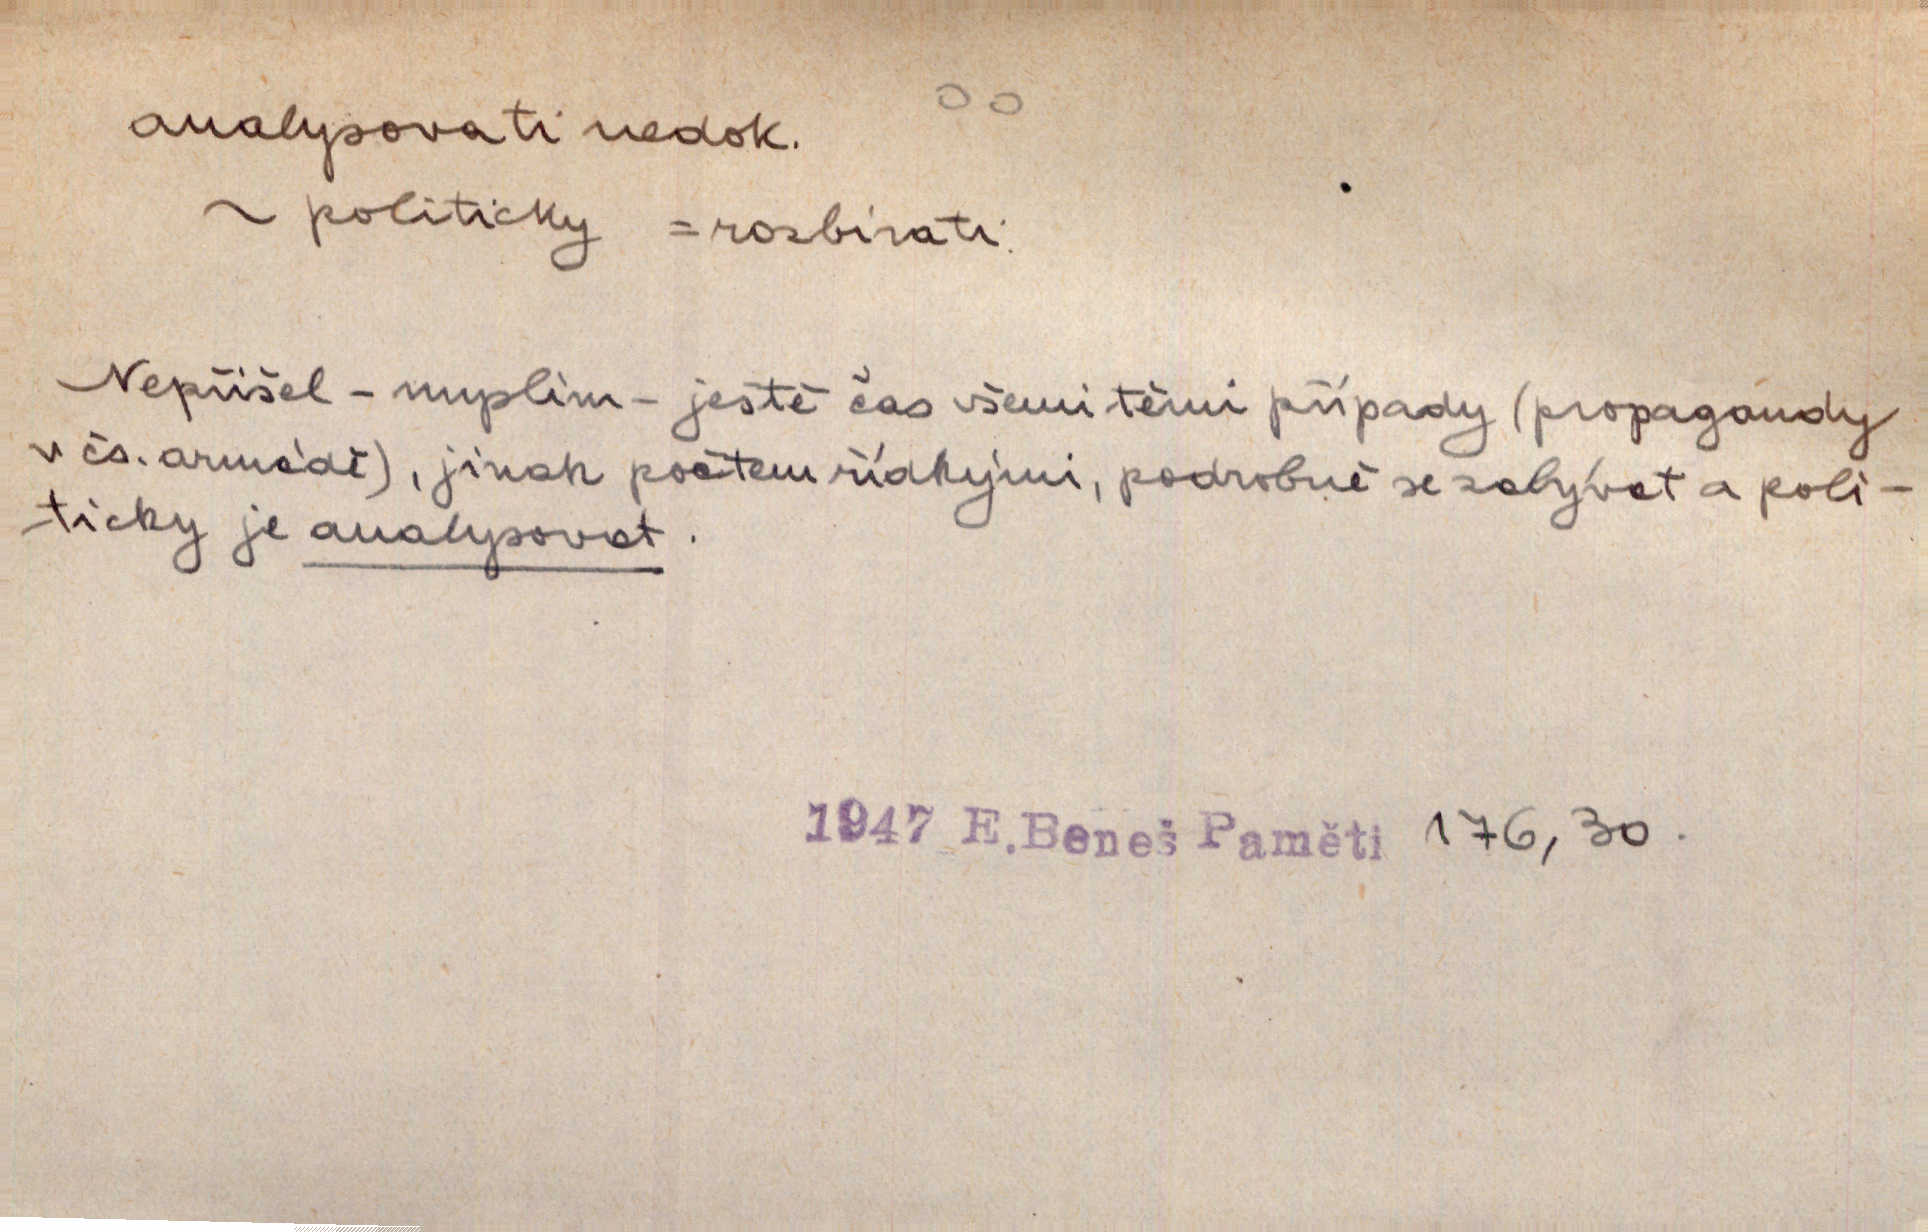 analysovati nedok.
~ politicky = rozbírati
Nepřišel - myslím - ještě čas všemi těmi případy (propagandy
v čs. armádě), jinak počtem řídkými, podrobně se zabývat a poli-
ticky je analysovat.
1947 E. Beneš Paměti 176, 30.